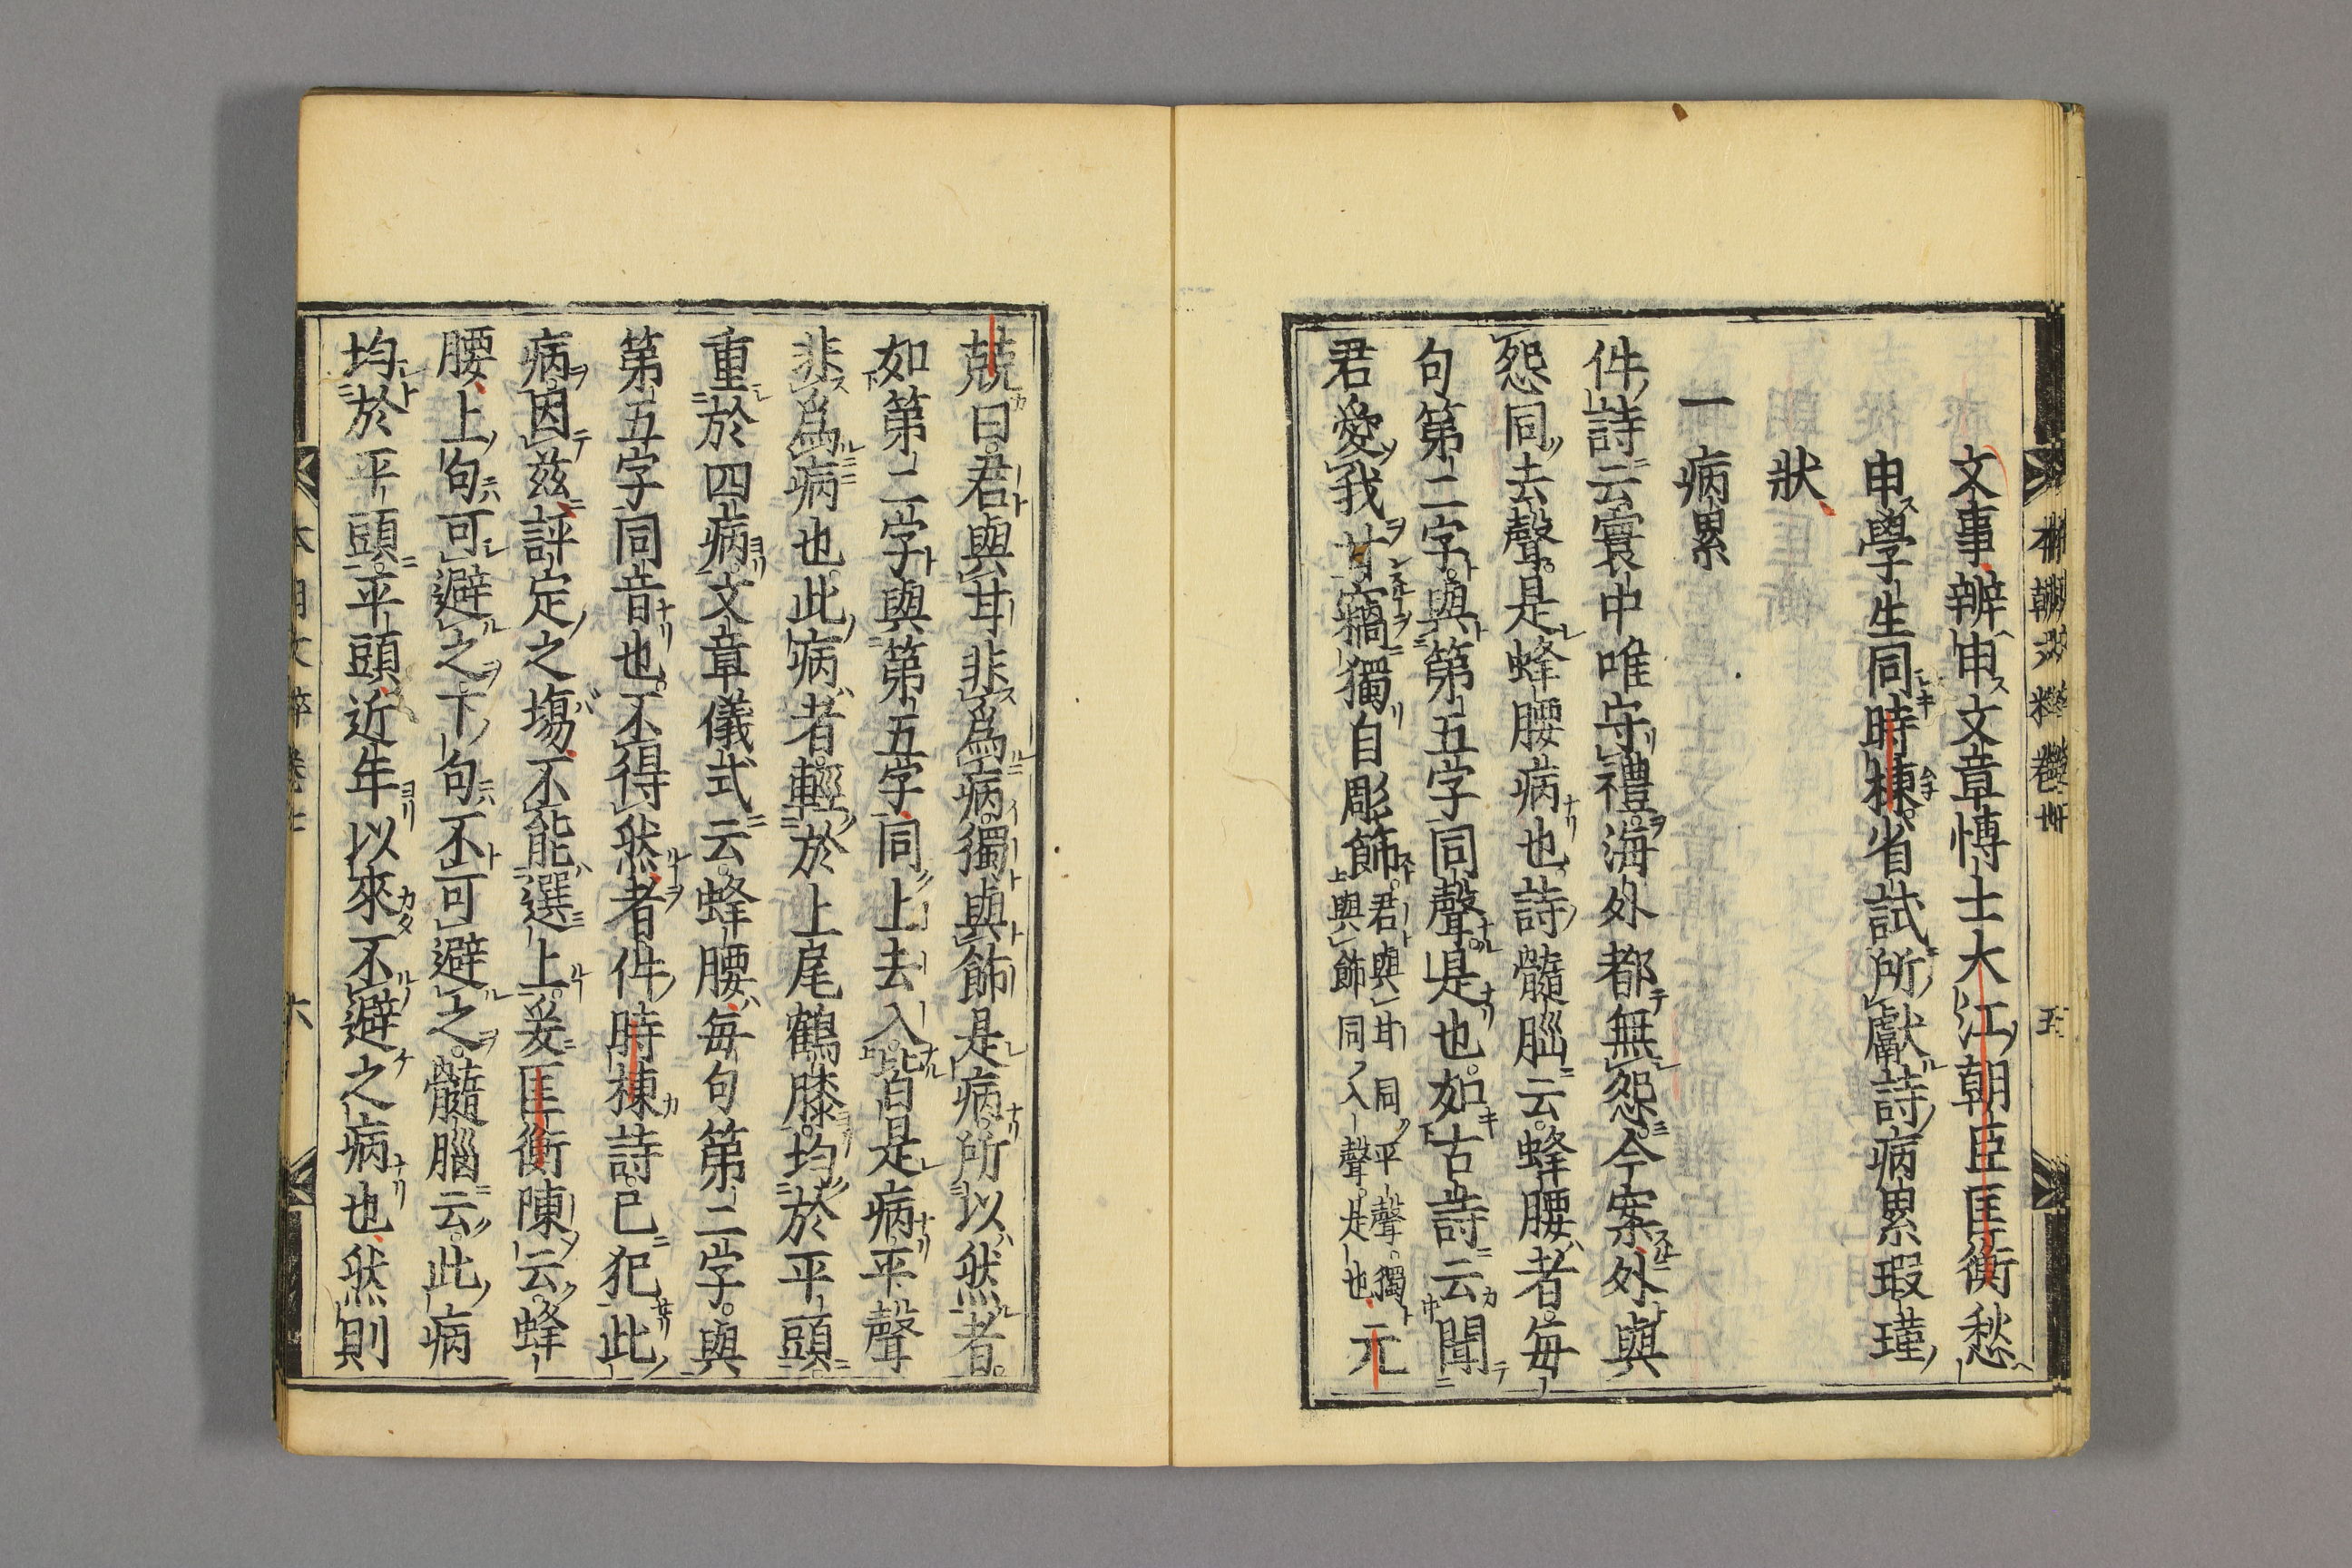 文事辨申文章愽士大江朝臣匡衡愁
申學生同時棟省試所獻詩病累瑕瑾
狀
一病累
件詩云寰中唯守禮海外都無怨今案外與
怨同去聲是蜂腰病也詩髓腦云蜂腰者每
句第二字與第五字同聲是也如古詩云聞
君愛我甘竊獨自彫飾君與甘同平聲獨
與飾同入聲是也元
兢曰君與甘非爲病獨與飾是病所以然者
如第二字與第五字同上去入皆是病平聲
非爲病也此病者輕於上尾鶴膝均於平頭
重於四病文章儀式云蜂腰每句第二字與
第五字同音也不得然者件時棟詩已犯此
病因茲評定之塲不能選上爰匡衡陳云蜂
腰上句可避之下句不可避之髓腦云此病
均於平頭平頭近年以來不避之病也然則
本朝文粹卷七
六